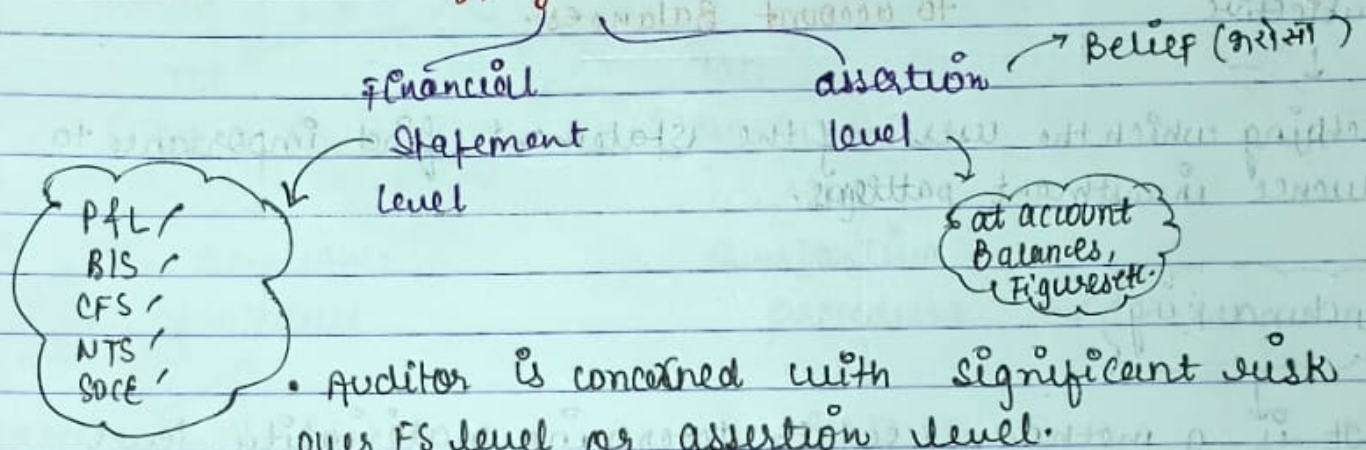 Financial
Statement
level
assertion
level
Belief (भरोसा)
P&L
B/S
CFS
NTS
SOCE
at account
Balances,
Figures etc.
• Auditor is concerned with significant risk
over FS level or assertion level.